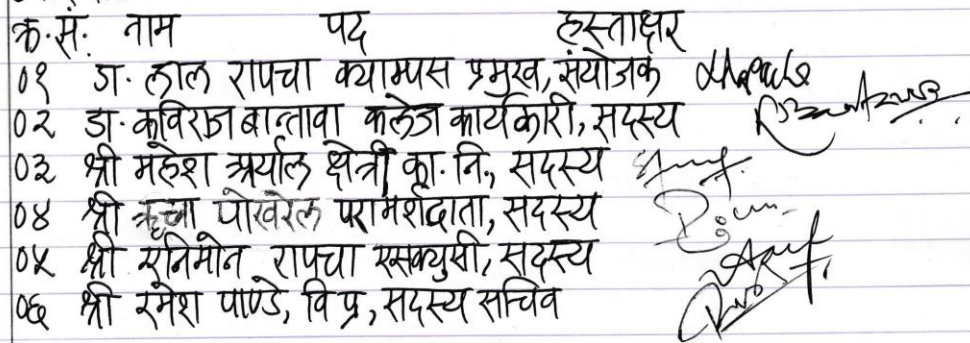 क्र.सं. नाम पद हस्ताक्षर
०१ डा. लाल रापचा क्याम्पस प्रमुख, संयोजक
०२ डा. कविराज बान्तावा कलेज कार्यकारी, सदस्य
०३ श्री महेश अर्याल क्षेत्री का. नि., सदस्य
०४ श्री ऋचा पोखरेल परामर्शदाता, सदस्य
०५ श्री एनिमोन रापचा एसक्युसी, सदस्य
०६ श्री रमेश पाण्डे, वि प्र, सदस्य सचिव